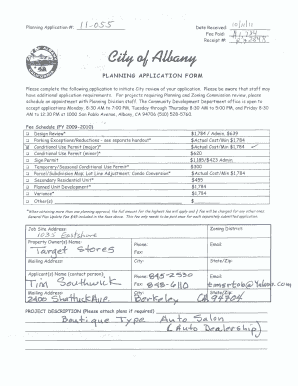 Planning Application #: 11-055
Date Received: 10/11/11
Fee Paid: $1,784
Receipt #:
City of Albany
PLANNING APPLICATION FORM
Please complete the following application to initiate City review of your application. Please be aware that staff may
have additional application requirements. For projects requiring Planning and Zoning Commission review, please
schedule an appointment with Planning Division staff. The Community Development Department office is open to
accept applications Monday, 8:30 AM to 7:00 PM, Tuesday through Thursday 8:30 AM to 5:00 PM, and Friday 8:30
AM to 12:30 PM at 1000 San Pablo Avenue, Albany, CA 94706 (510) 528-5760.
Fee Schedule (FY 2009-2010)
Design Review* $1,784 / Admin. $639
Parking Exceptions/Reductions - see separate handout* $Actual Cost/Min $1,784
Conditional Use Permit (major)* $Actual Cost/Min $1,784
Conditional Use Permit (minor)* $620
Sign Permit $1,185/$423 Admin.
Temporary/Seasonal Conditional Use Permit* $300
Parcel/Subdivision Map; Lot Line Adjustment; Condo Conversion* $Actual Cost/Min $1,784
Secondary Residential Unit* $495
Planned Unit Development* $1,784
Variance* $1,784
Other(s):
*When obtaining more than one planning approval, the full amount for the highest fee will apply and ½ fee will be charged for any other ones.
General Plan Update Fee $45 included in the base above. The fee only needs to be paid once for each separately submitted application.
Job Site Address:
1035 Eastshore
Zoning District:
Property Owner(s) Name:
Target Stores
Phone:
Fax:
Email:
Mailing Address:
City:
State/Zip:
Applicant(s) Name (contact person):
Tim Southwick
Phone: 845-2530
Fax: 848-6110
Email:
Mailing Address:
2400 Shattuck Ave.
City:
Berkeley
State/Zip:
CA 94704
PROJECT DESCRIPTION (Please attach plans if required)
Boutique Type Auto Salon
(Auto Dealership)